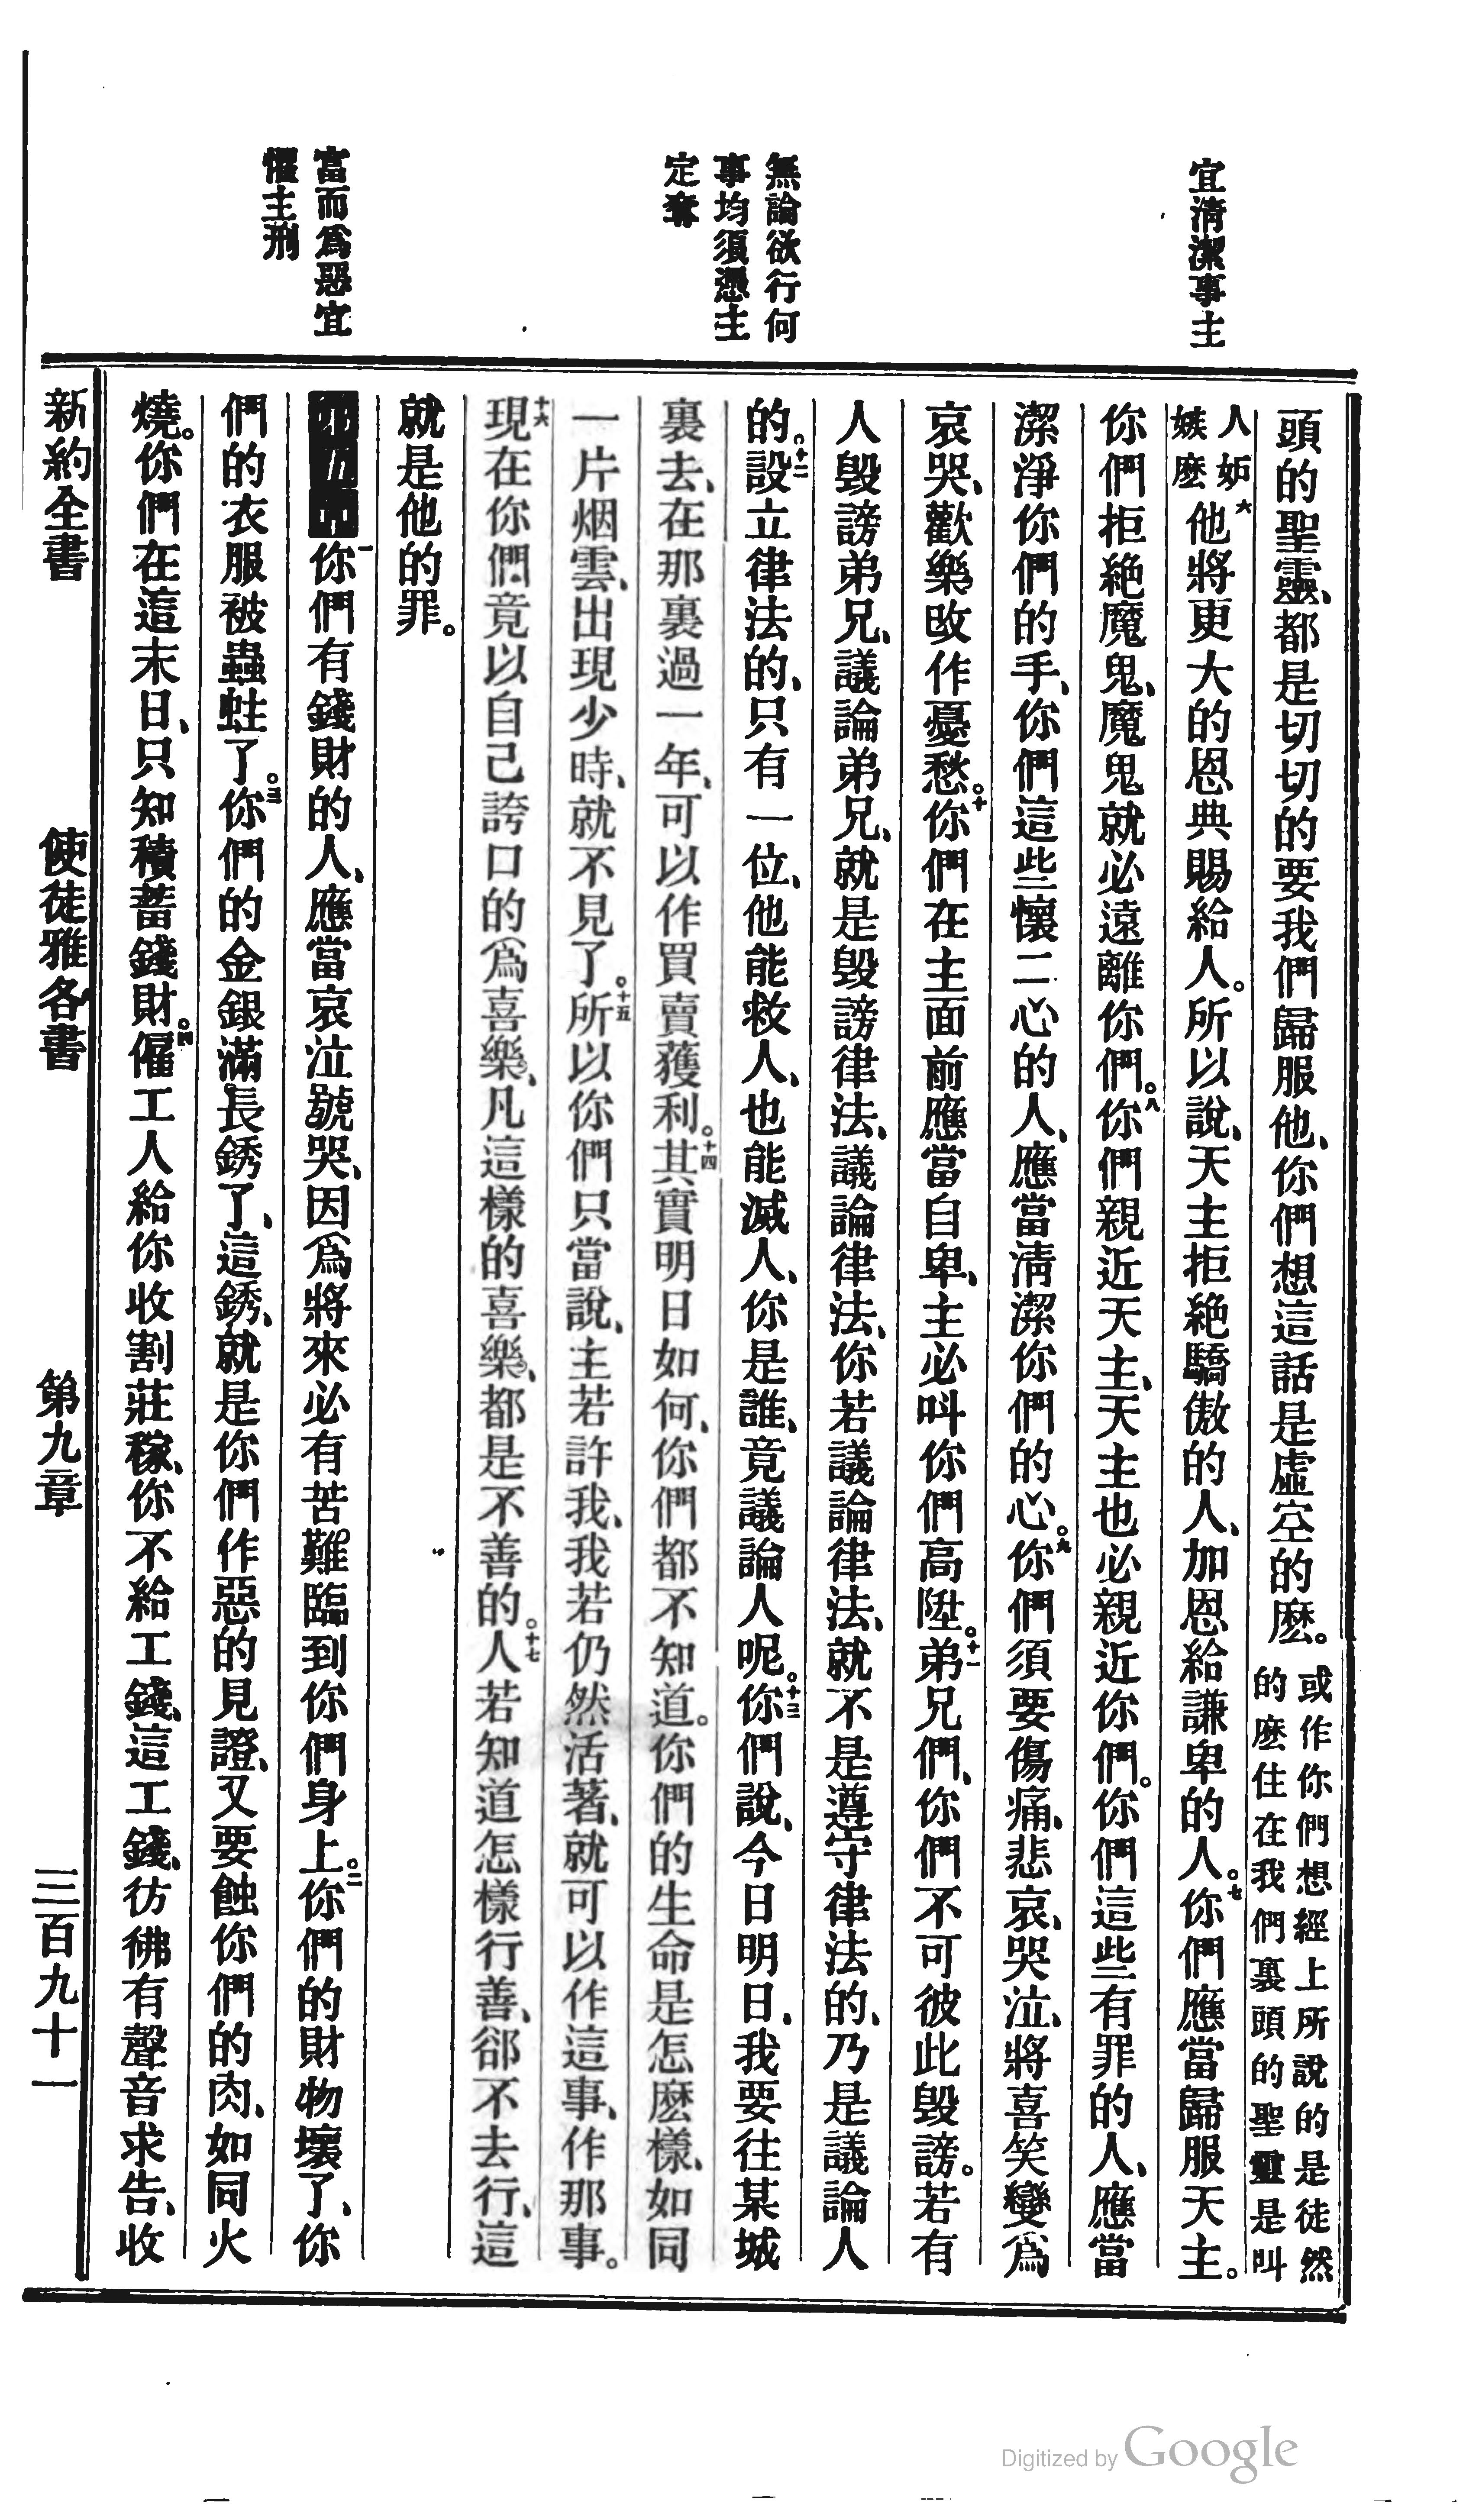 宜清潔事主
無論欲行何
事均須憑主
定奪
富而爲惡宜
懼主刑
頭的聖靈、都是切切的要我們歸服他、你們想這話是虛空的麽。或作你們想經上所說的是徒然
的麽住在我們裏頭的聖靈是叫
人妬
嫉麽六他將更大的恩典賜給人。所以說、天主拒絶驕傲的人、加恩給謙卑的人。七你們應當歸服天主。
你們拒絶魔鬼、魔鬼就必遠離你們。八你們親近天主、天主也必親近你們。你們這些有罪的人、應當
潔淨你們的手、你們這些懷二心的人、應當清潔你們的心。九你們須要傷痛、悲哀、哭泣、將喜笑變爲
哀哭、歡樂改作憂愁。十你們在主面前應當自卑、主必叫你們高陞。十一弟兄們、你們不可彼此毀謗。若有
人毀謗弟兄、議論弟兄、就是毀謗律法、議論律法、你若議論律法、就不是遵守律法的、乃是議論人
的。十二設立律法的、只有一位、他能救人、也能滅人、你是誰、竟議論人呢。十三你們說、今日明日、我要往某城
裏去、在那裏過一年、可以作買賣獲利。十四其實明日如何、你們都不知道。你們的生命是怎麽樣、如同
一片烟雲、出現少時、就不見了。十五所以你們只當說、主若許我、我若仍然活著、就可以作這事、作那事。
十六現在你們竟以自己誇口的爲喜樂、凡這樣的喜樂、都是不善的。十七人若知道怎樣行善、郤不去行、這
就是他的罪。
第五章一你們有錢財的人、應當哀泣號哭、因爲將來必有苦難臨到你們身上。二你們的財物壞了、你
們的衣服被蟲蛀了。三你們的金銀滿長銹了、這銹、就是你們作惡的見證、又要蝕你們的肉、如同火
燒。你們在這末日、只知積蓄錢財。四僱工人給你收割莊稼、你不給工錢、這工錢、彷彿有聲音求告、收
新約全書　使徒雅各書　第九章　三百九十一
Digitized by Google